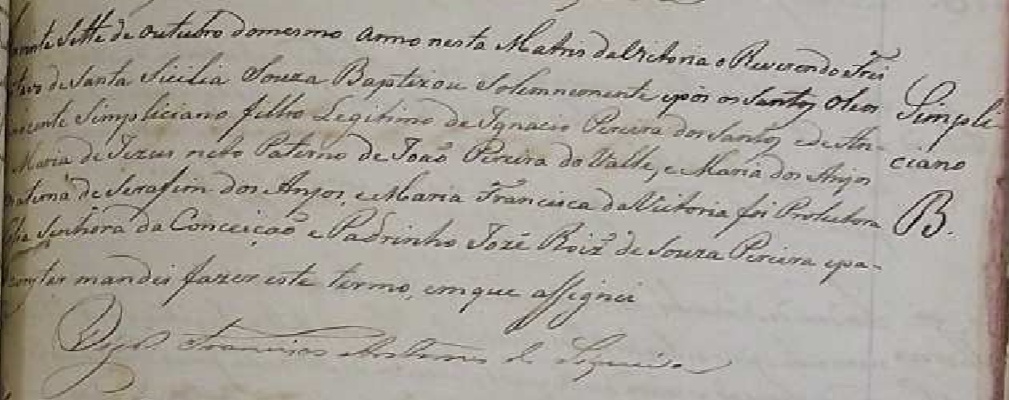 vinte Sette de outubro domesmo anno nesta Matris da Victoria o Reverendo Frei
de Santa Sicilia Souza Baptizou Solemnemente epôs os Santos Oleos
nocente Simpliciano filho Legitimo de Ignacio Pereira dos Santos, e de An-
Maria de Jezus neto Paterno de João Pereira do Valle, e Maria dos Anjos
materna de Serafim dos Anjos, e Maria Francisca da Victoria foi Protectora
Senhora da Conceição e Padrinho Jozé Roiz' de Souza Pereira epa-
constar mandei fazer este termo, emque assignei
Francisco Antunes de Siqueira
Simpli-
ciano
B.